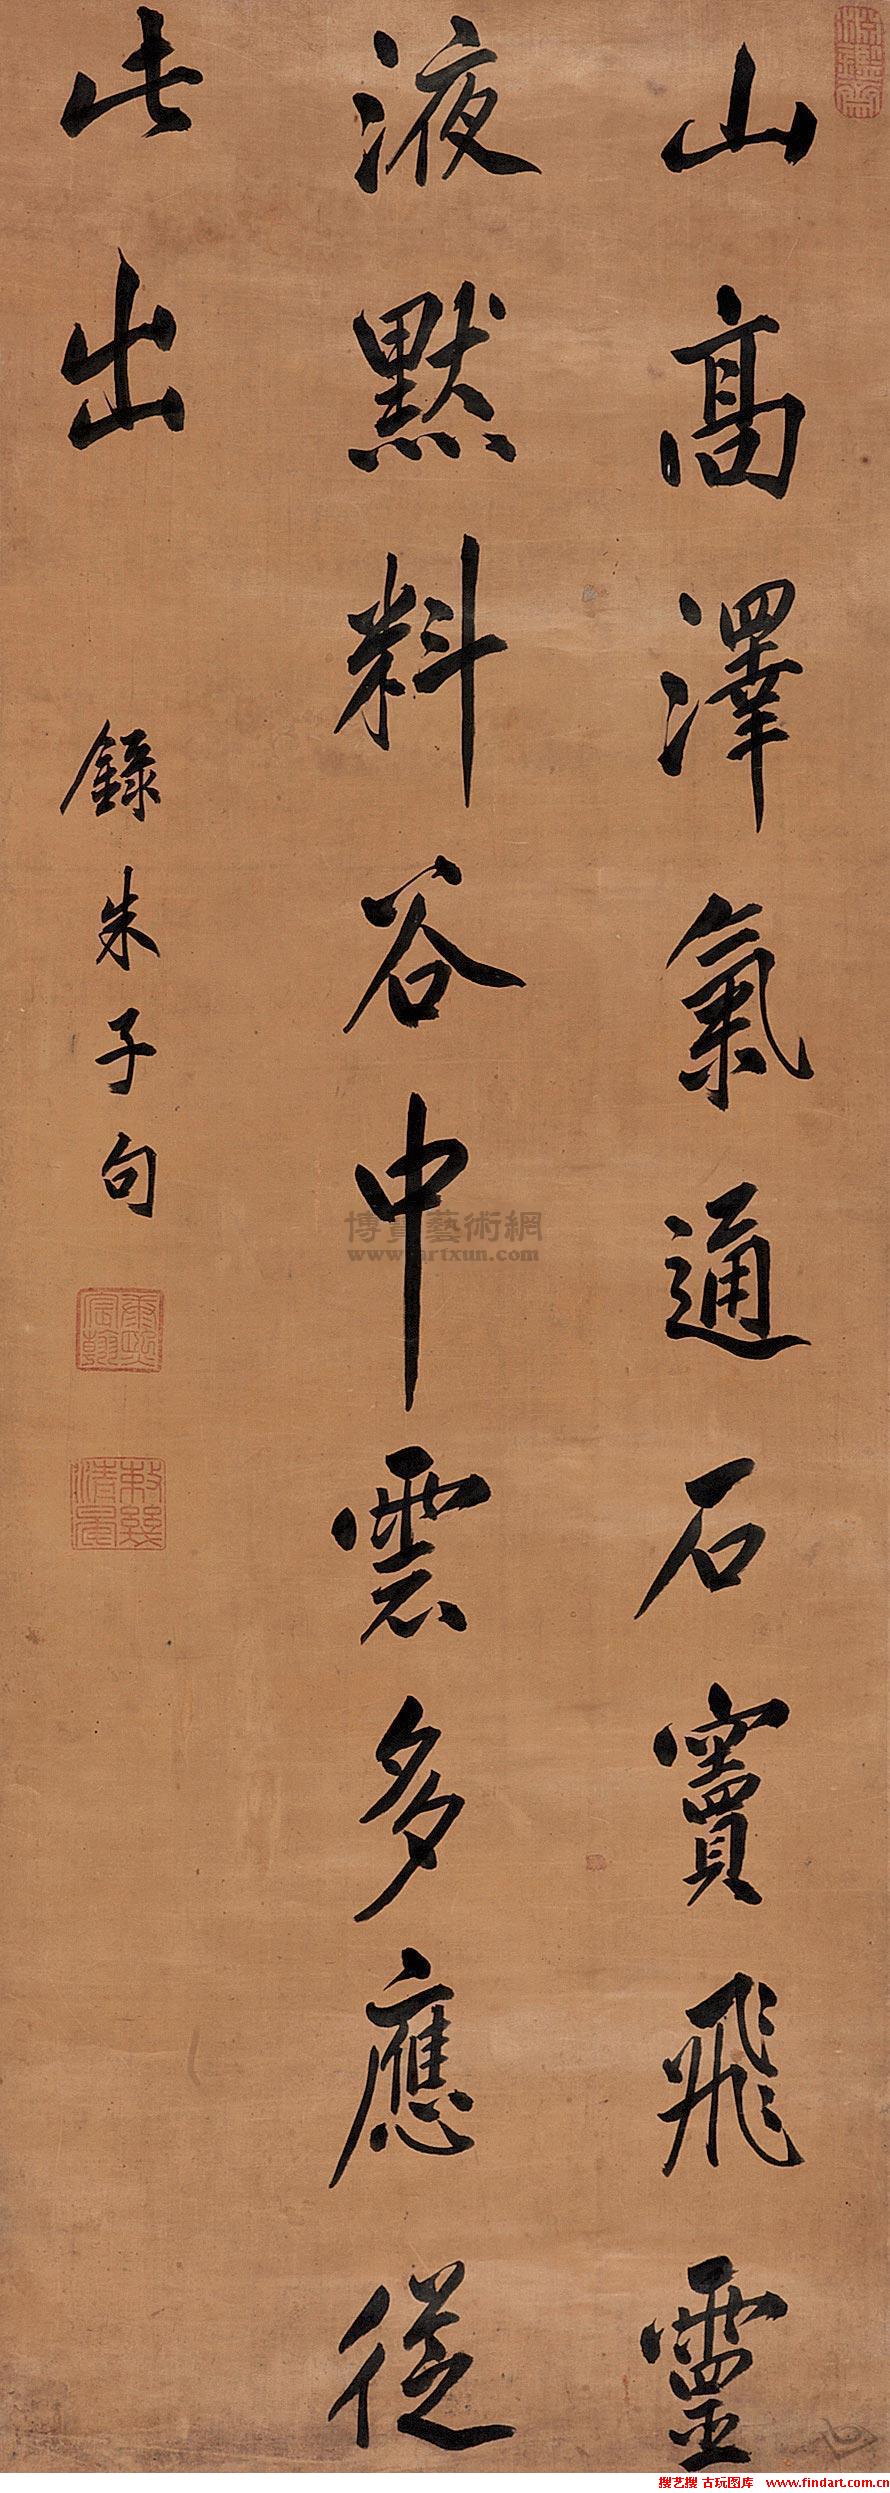 山高澤氣通石竇飛靈
液默料谷中雲多應從
此出
錄朱子句
康熙宸翰
敕幾清晏
淵鑒齋
博寶藝術網
www.artxun.com
搜艺搜 古玩图库 www.findart.com.cn